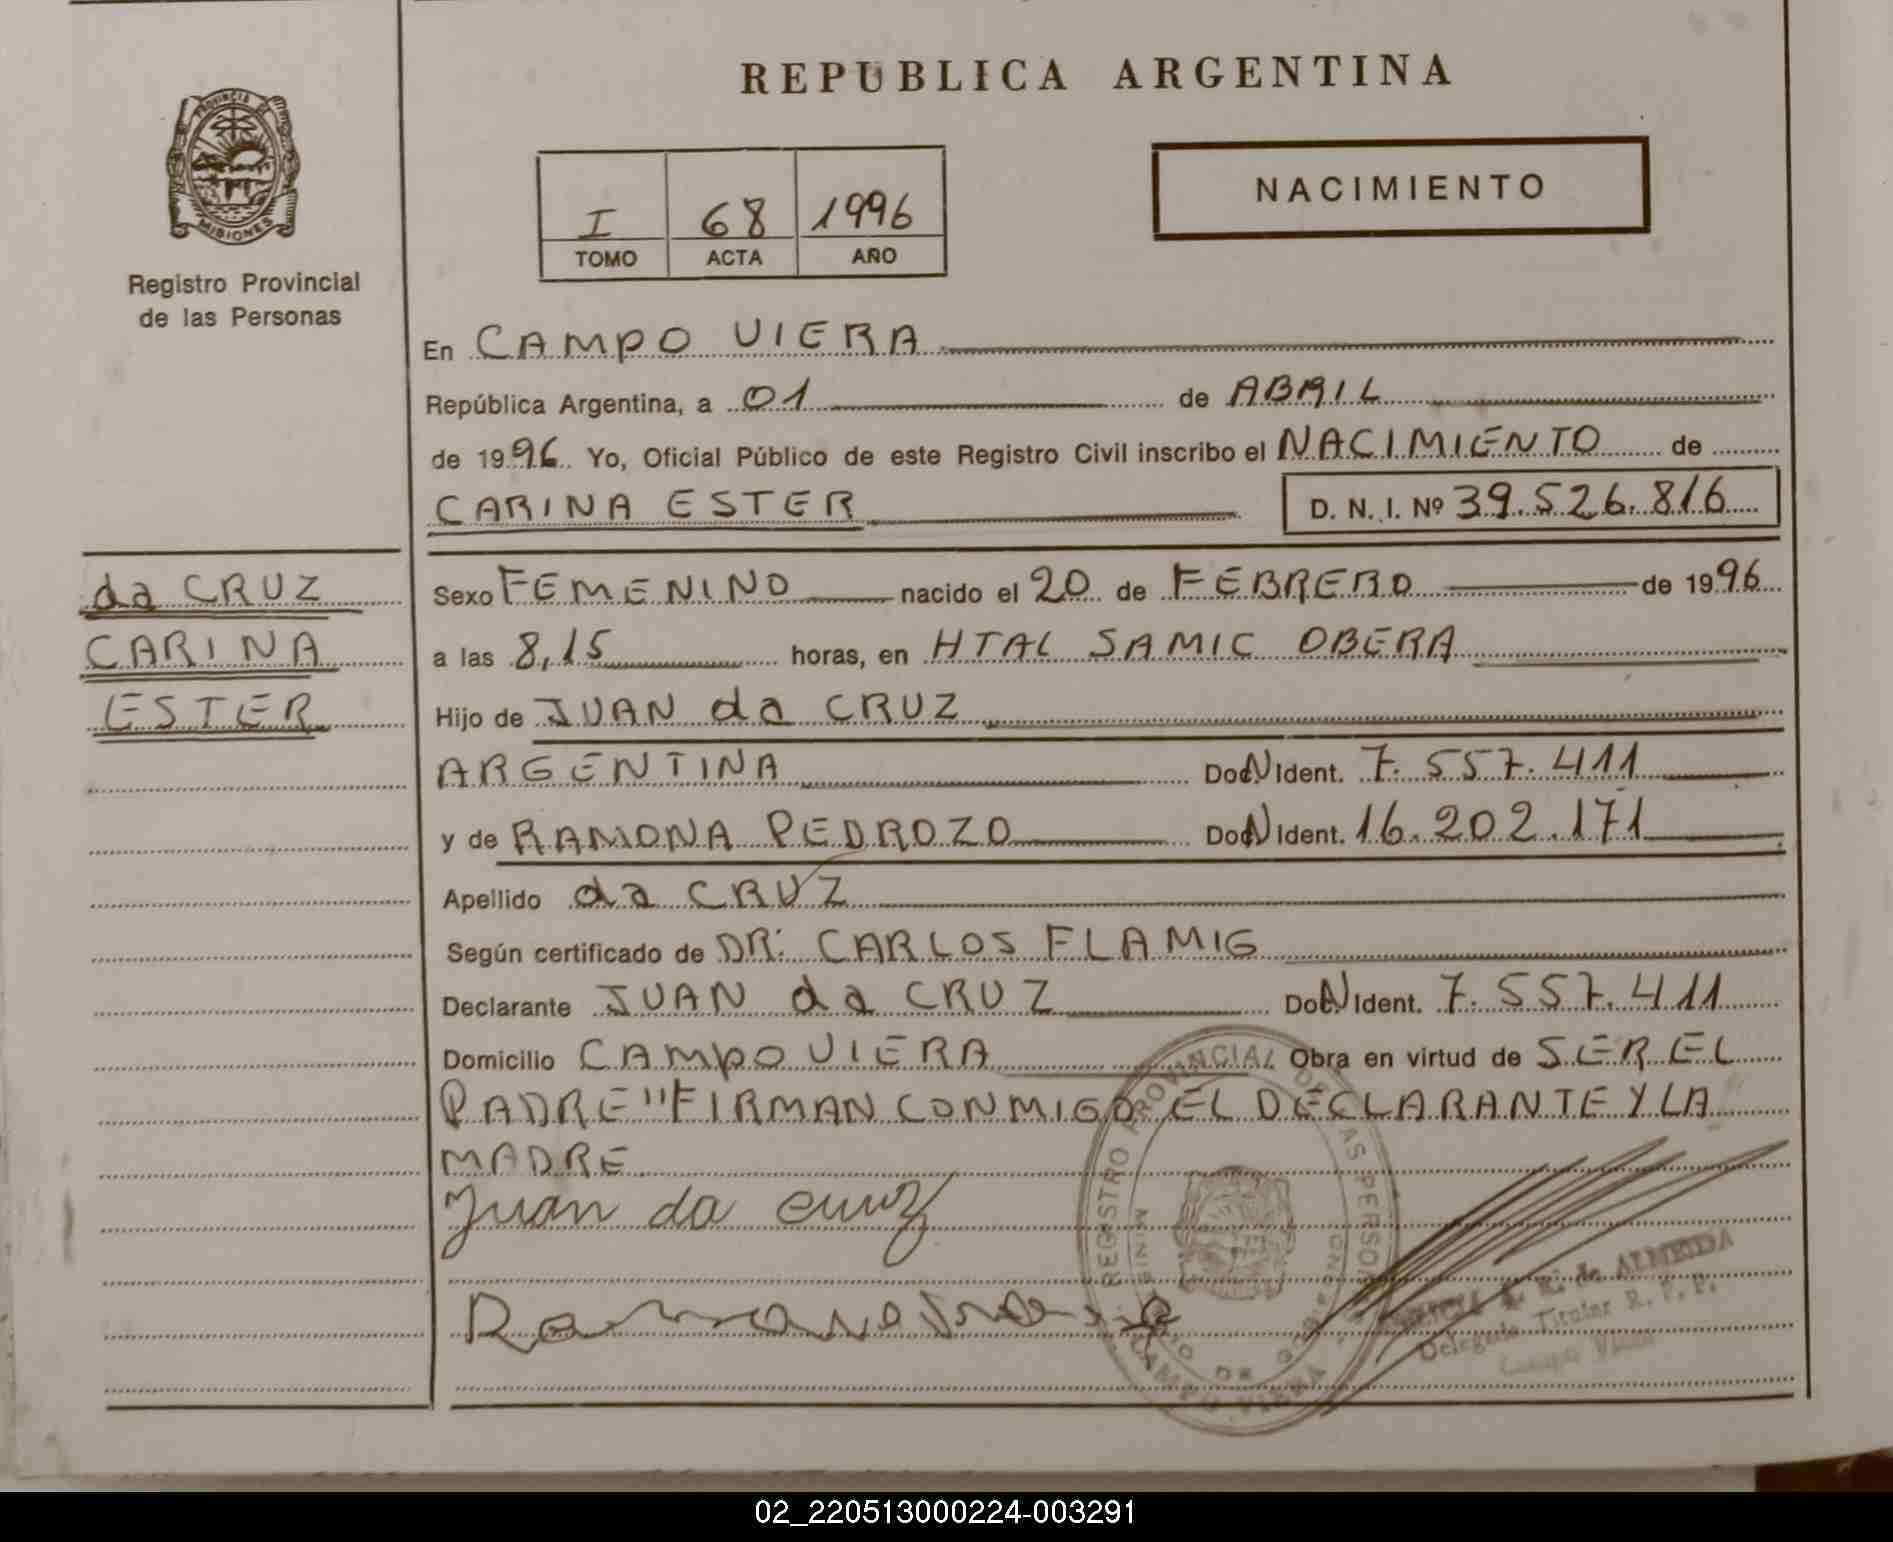 REPUBLICA ARGENTINA
PROVINCIA DE
MISIONES
Registro Provincial
de las Personas
I 68 1996
TOMO ACTA AÑO
NACIMIENTO
En CAMPO VIERA
República Argentina, a 01 de ABRIL
de 1996. Yo, Oficial Público de este Registro Civil inscribo el NACIMIENTO de
CARINA ESTER D. N. I. Nº 39.526.816
da CRUZ
CARINA
ESTER
Sexo FEMENINO nacido el 20 de FEBRERO de 1996
a las 8,15 horas, en HTAL SAMIC OBERA
Hijo de JUAN da CRUZ
ARGENTINA Doc.N Ident. 7.557.411
y de RAMONA PEDROZO Doc.N Ident. 16.202.171
Apellido da CRUZ
Según certificado de DR: CARLOS FLAMIG
Declarante JUAN da CRUZ Doc.N Ident. 7.557.411
Domicilio CAMPO VIERA Obra en virtud de SER EL
PADRE "FIRMAN CONMIGO EL DECLARANTE Y LA
MADRE
Juan da cruz
REGISTRO PROVINCIAL DE LAS PERSONAS
CAMPO VIERA
de ALMEIDA
Delegada Titular R. P. P.
Campo Viera
02_220513000224-003291